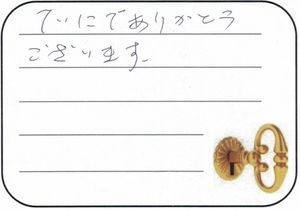 ていにでありがとう
ございます。